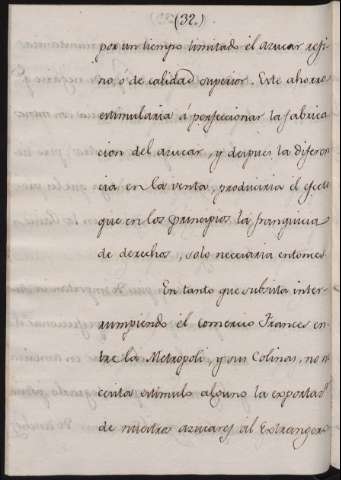 (32.)
por un tiempo limitado el azucar refi
no, ó de calidad superior. Este ahorro
estimularia á perfeccionar la fabrica
cion del azucar, y despues la diferen
cia en la venta, produciria el efecto
que en los principios la franquicia
de derechos, solo necesaria entonces
En tanto que subsista inter-
rumpiendo el comercio Frances en-
tre la Metropoli, y sus Colinas, no ne
cesita estimulo alguno la exportaon
de nuestros azucares al Extrangero